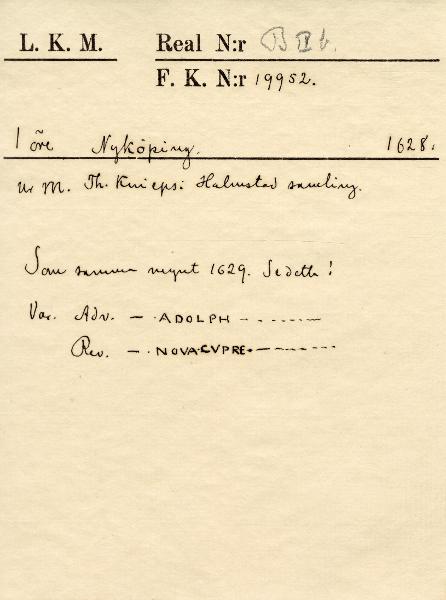 L. K. M. Real N:r B II b.
F. K. N:r 19952.
1 öre Nyköping. 1628.
ur M. Th. Knieps: Halmstad samling.
Som samma mynt 1629. Se detta!
Var. Adv. — · ADOLPH — - - - - - —
Rev. — · NOVA·CVPRE· — - - - - -